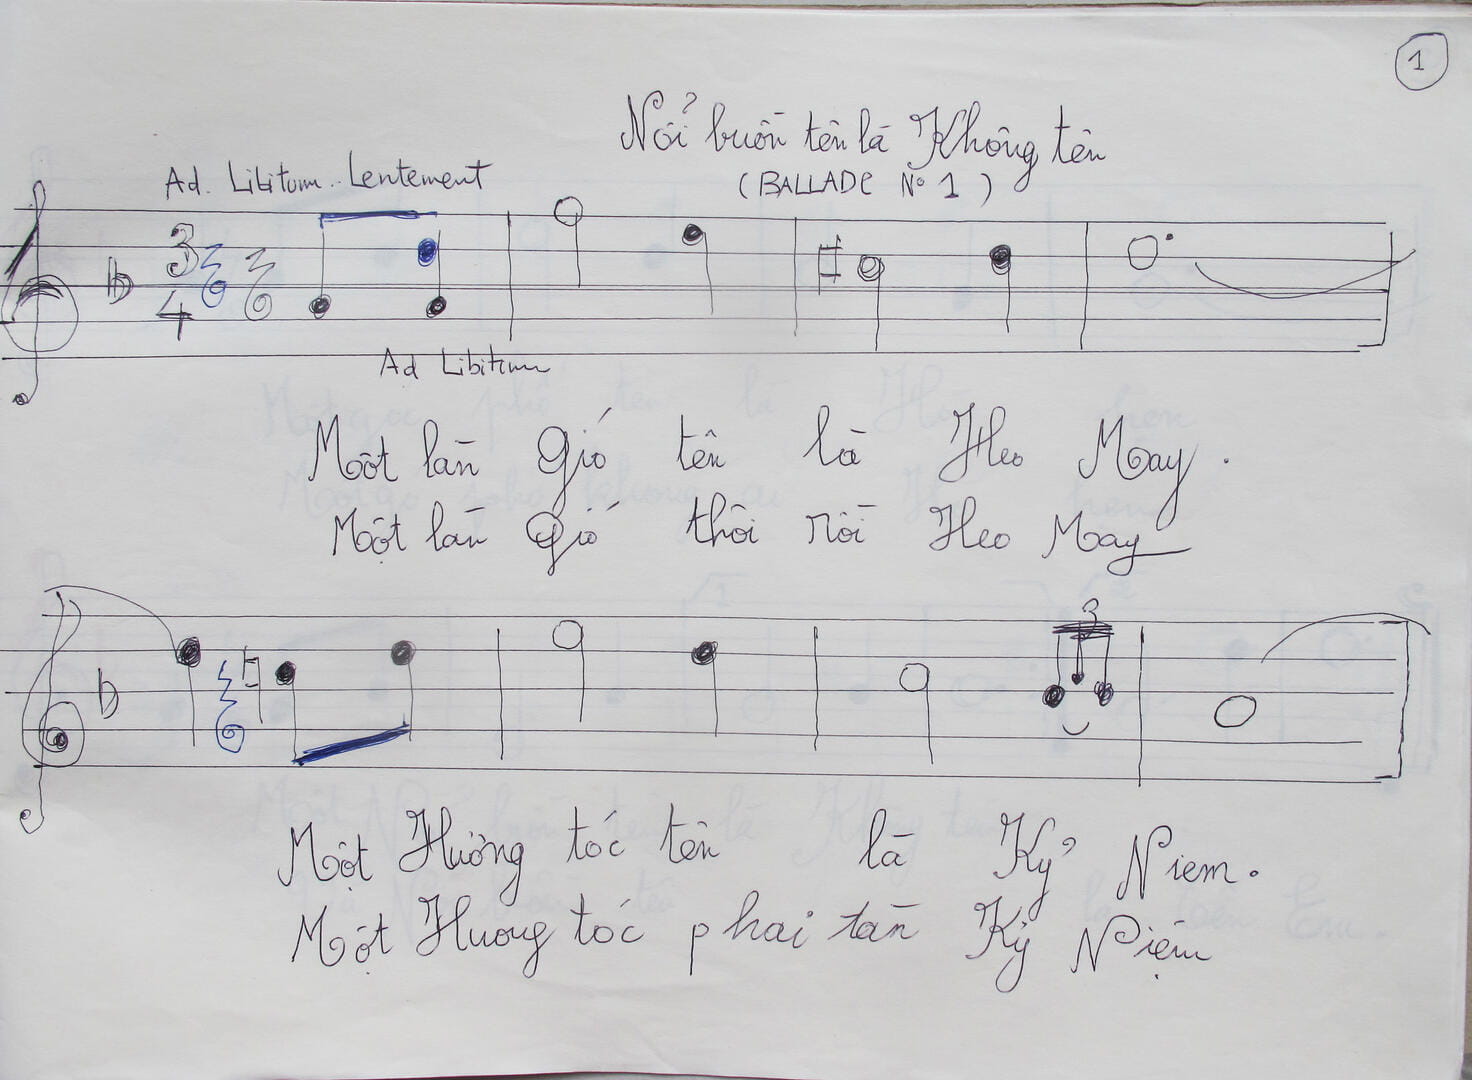 1
Nổi buồn tên là Không tên
Ad. Libitum.. Lentement
(BALLADE N° 1)
3
4
Ad Libitum
Một lần gió tên là Heo May.
Một lần gió thôi rồi Heo May
3
Một Hương tóc tên là Kỷ Niem.
Một Huong tóc phai tàn Kỷ Niệm